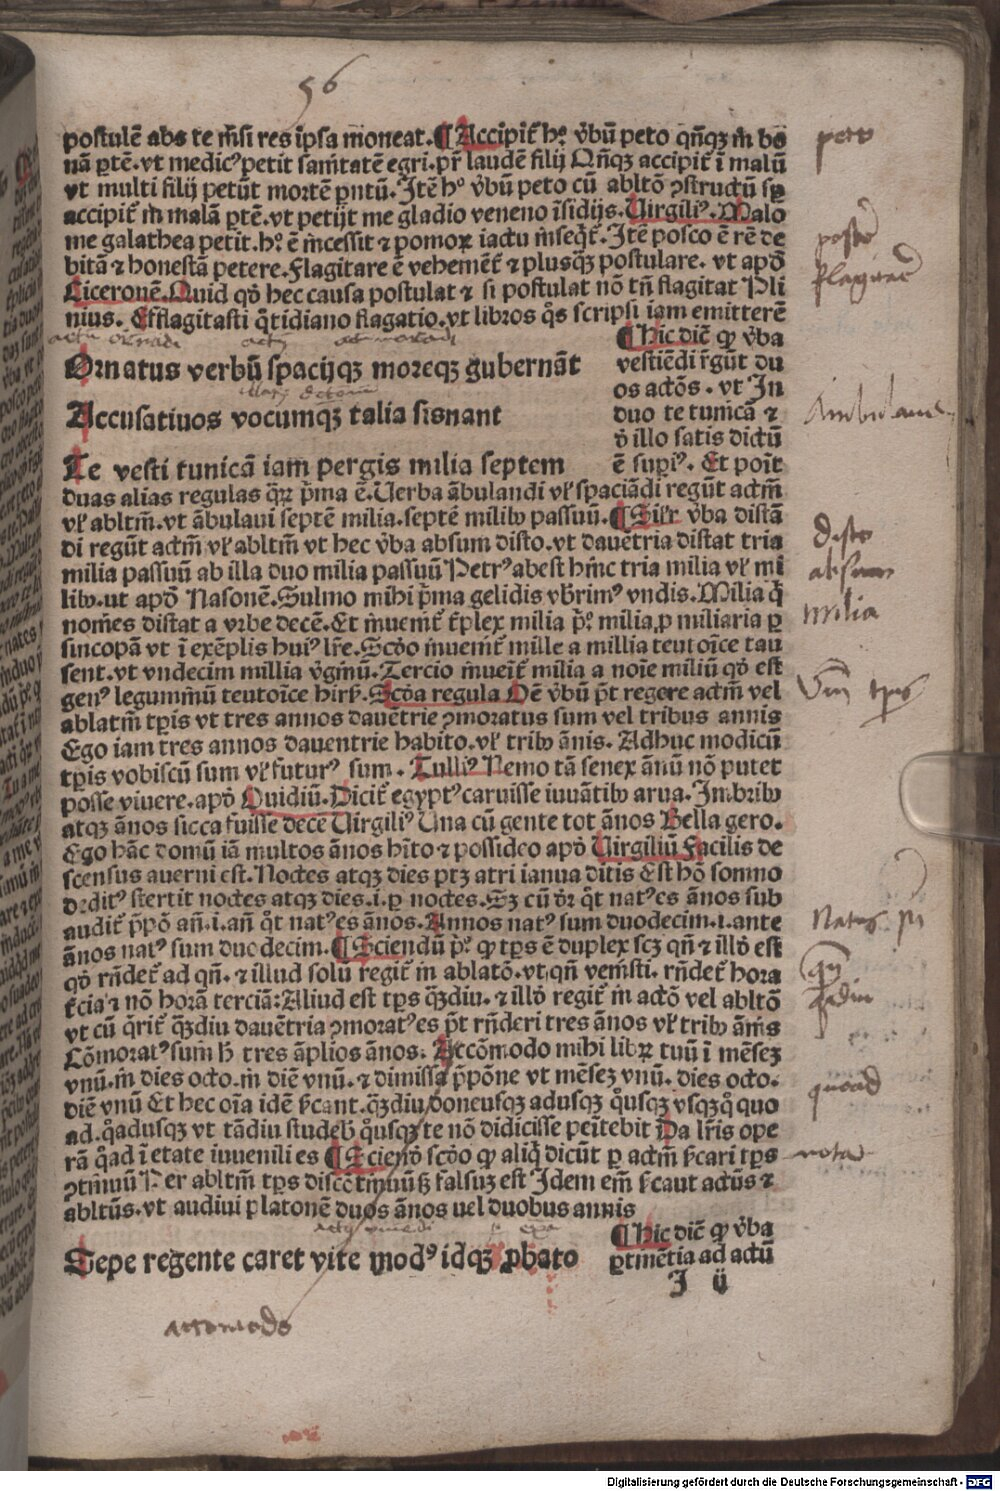 56
postulē abs te m̄si res ip̄sa moneat. ¶ Accipit̄ hꝰ v̄bū peto qn̄qꝫ in bo
nā ꝑtē. vt medicꝰ petit sanitatē egri. pr̄ laudē filij Qn̄qꝫ accipit̄ ī malū
vt multi filij petūt mortē ꝑntū. Itē hꝰ v̄bū peto cū abltō ꝯstructū sꝑ
accipit̄ in malā ꝑtē. vt petijt me gladio veneno īsidijs. Uirgiliꝰ. Malo
me galathea petit. hꝰ ē incessit ⁊ pomoꝝ iactu inseqt̄. Itē posco ē rē de
bitā ⁊ honestā petere. Flagitare ē vehemēt̄ ⁊ plusqꝫ postulare. vt apd̄
Ciceronē. Quid qd̄ hec causa postulat ⁊ si postulat nō tn̄ flagitat Pli
nius. Efflagitasti q̄tidiano flagatio. vt libros q̄s scripsi iam emitterē
Ornatus verbū spacijqꝫ moreqꝫ gubernāt
Accusatiuos vocumqꝫ talia signant
Te vesti tunicā iam pergis milia septem
¶ Hic dicē ꝙ v̄ba
vestiēdi rḡūt du
os actōs. vt In
duo te tunicā ⁊
d̄ illo satis dictū
ē supiꝰ. Et poīt
duas alias regulas q̄ꝝ p̄ma ē. Uerba ābulandi vl̄ spaciādi regūt actm̄
vl̄ abltm̄. vt ābulaui septē milia. septē milib᷒ passuū. ¶ Silr̄ v̄ba distā
di regūt actm̄ vl̄ abltm̄ vt hec v̄ba absum disto. vt dauētria distat tria
milia passuū ab illa duo milia passuū Petrꝰ abest hinc tria milia vl̄ mi
lib᷒. ut apd̄ Nasonē. Sulmo mihi p̄ma gelidis vbr̄imꝰ vndis. Milia q̄
nomēs distat a vrbe decē. Et inuenit̄ t̄plex milia p̄ꝰ milia ꝓ miliaria ꝑ
sincopā vt ī exēplis huiꝰ lr̄e. Scd̄o inuenit̄ mille a millia teutoīce tau
sent. vt vndecim millia v̄gīnū. Tercio inueīt̄ milia a noīe miliū qd̄ est
genꝰ leguminū teutoīce hirß. Scd̄a regula Oē v̄bū p̄t regere actm̄ vel
ablatm̄ tꝑis vt tres annos dauētrie ꝯmoratus sum vel tribus annis
Ego iam tres annos dauentrie habito. vl̄ trib᷒ ānis. Adhuc modicū
tꝑis vobiscū sum vl̄ futurꝰ sum. Tulliꝰ Nemo tā senex ānū nō putet
posse viuere. apd̄ Ouidiū. Dicit̄ egyptꝰ caruisse iuuātib᷒ arua. Imbrib᷒
atqꝫ ānos sicca fuisse decē Uirgiliꝰ Una cū gente tot ānos Bella gero.
Ego hāc domū iā multos ānos hīto ⁊ possideo apd̄ Uirgiliū Facilis de
scensus auerni est. Noctes atqꝫ dies ptꝫ atri ianua ditis Est hō somno
deditꝰ stertit noctes atqꝫ dies. i. ꝑ noctes. Sꝫ cū dr̄ q̄t natꝰ es ānos sub
audit̄ p̄pō an̄. i. an̄ q̄t natꝰ es ānos. Annos natꝰ sum duodecim. i. ante
ānos natꝰ sum duodecim. ¶ Sciendū p̄ꝰ ꝙ tꝑs ē duplex scꝫ qn̄ ⁊ illd̄ est
qd̄ rn̄det̄ ad qn̄. ⁊ illud solū regit̄ in ablatō. vt qn̄ venisti. rn̄det̄ hora
t̄cia ⁊ nō horā terciā: Aliud est tꝑs q̄ꝫdiu. ⁊ illd̄ regit̄ in actō vel abltō
vt cū q̄rit̄ q̄ꝫdiu dauētria ꝯmoratꝰ es p̄t rn̄deri tres ānos vl̄ trib᷒ ānis
Cōmoratꝰ sum h̄ tres āplios ānos. Accōmodo mihi libꝝ tuū ī mēseꝫ
vnū. in dies octo. in diē vnū. ⁊ dimissa p̄pōne vt mēseꝫ vnū. dies octo.
diē vnū Et hec oīa idē s̄cant. q̄ꝫdiu doneusqꝫ adusqꝫ q̄usqꝫ vsqꝫq̄ quo
ad. q̄adusqꝫ vt tādiu studeb̄ q̄usqꝫ te nō didicisse peītebit Da lr̄is ope
rā q̄ad ī etate iuuenili es ¶ Sciend̄ scd̄o ꝙ aliq̄ dicūt ꝑ actm̄ s̄cari tꝑs
ꝯtinuū Per abltm̄ tꝑs discōtinuū ß falsuꝫ est Idem em̄ s̄cant actūs ⁊
abltūs. vt audiui platonē duos ānos uel duobus annis
Sepe regente caret vite modꝰ idqꝫ ꝓbato
¶ Hic dicē ꝙ v̄ba
ꝑtinētia ad actū
I ij
peto
posco
Ambulaui
disto
absum
milia
quoad
nota
accomodo
Digitalisierung gefördert durch die Deutsche Forschungsgemeinschaft - DFG